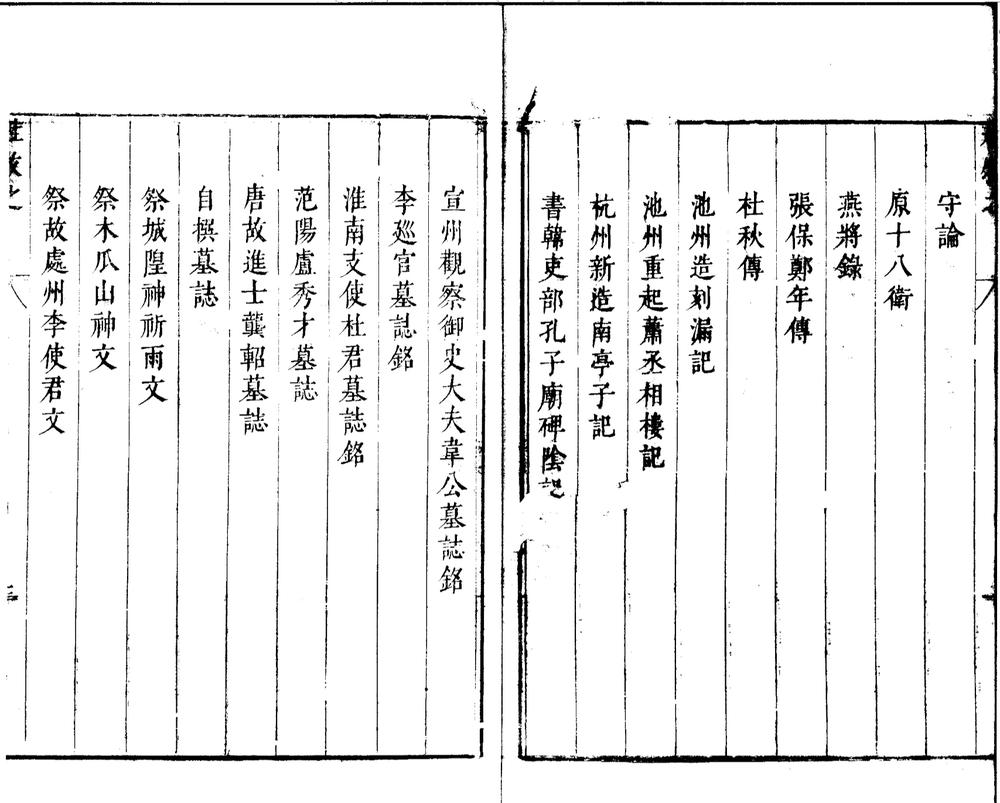 守論
原十八衛
燕將錄
張保鄭年傳
杜秋傳
池州造刻漏記
池州重起蕭丞相樓記
杭州新造南亭子記
書韓吏部孔子廟碑陰記
宣州觀察御史大夫韋公墓誌銘
李廵官墓誌銘
淮南支使杜君墓誌銘
范陽盧秀才墓誌
唐故進士龔軺墓誌
自撰墓誌
祭城隍神祈雨文
祭木瓜山神文
祭故處州李使君文